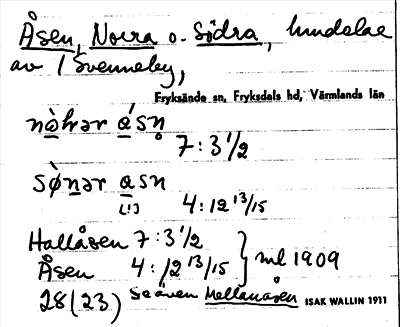 Åsen, Norra o. Södra, hundelar
av 1 Svenneby,
Fryksände sn, Fryksdals hd, Värmlands län
nòḥrər ásn̥
7:3 1/2
sønər asn
[!]
4:12 13/15
Hallåsen 7:3 1/2
Åsen 4:12 13/15 } ml 1909
28(23) Se även Mellanåsen ISAK WALLIN 1911